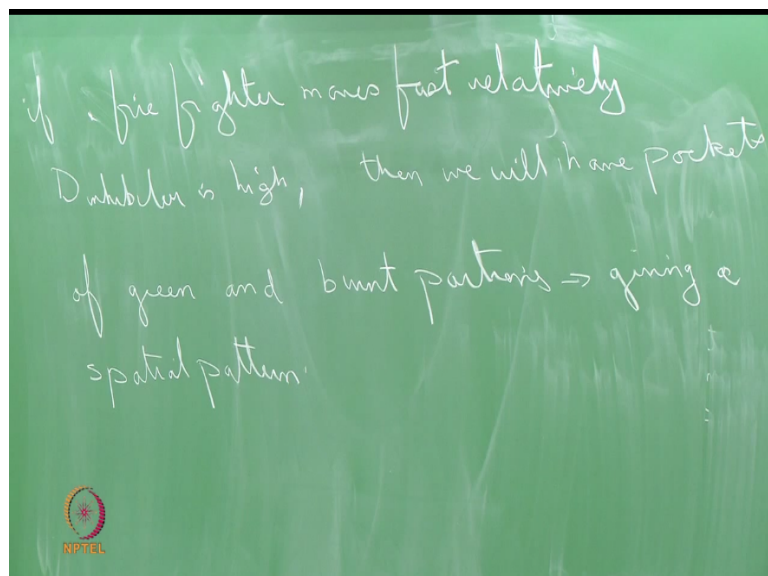 if fire fighter moves fast relatively
D inhibitor is high, then we will have pockets
of green and burnt portions ⇒ giving a
spatial pattern.
NPTEL